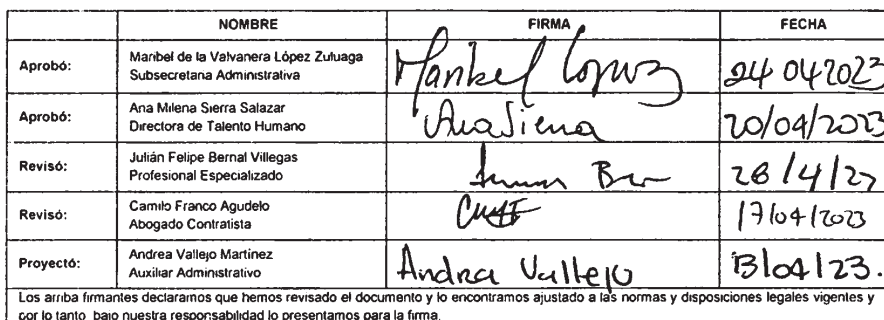 NOMBRE FIRMA FECHA
Aprobó: Maribel de la Valvanera López Zuluaga
Subsecretaria Administrativa Maribel López 24 04 2023
Aprobó: Ana Milena Sierra Salazar
Directora de Talento Humano Ana Sierra 20/04/2023
Revisó: Julián Felipe Bernal Villegas
Profesional Especializado
Revisó: Camilo Franco Agudelo
Abogado Contratista 17/04/2023
Proyectó: Andrea Vallejo Martínez
Auxiliar Administrativo Andrea Vallejo 13/04/23.
Los arriba firmantes declaramos que hemos revisado el documento y lo encontramos ajustado a las normas y disposiciones legales vigentes y
por lo tanto, bajo nuestra responsabilidad lo presentamos para la firma.